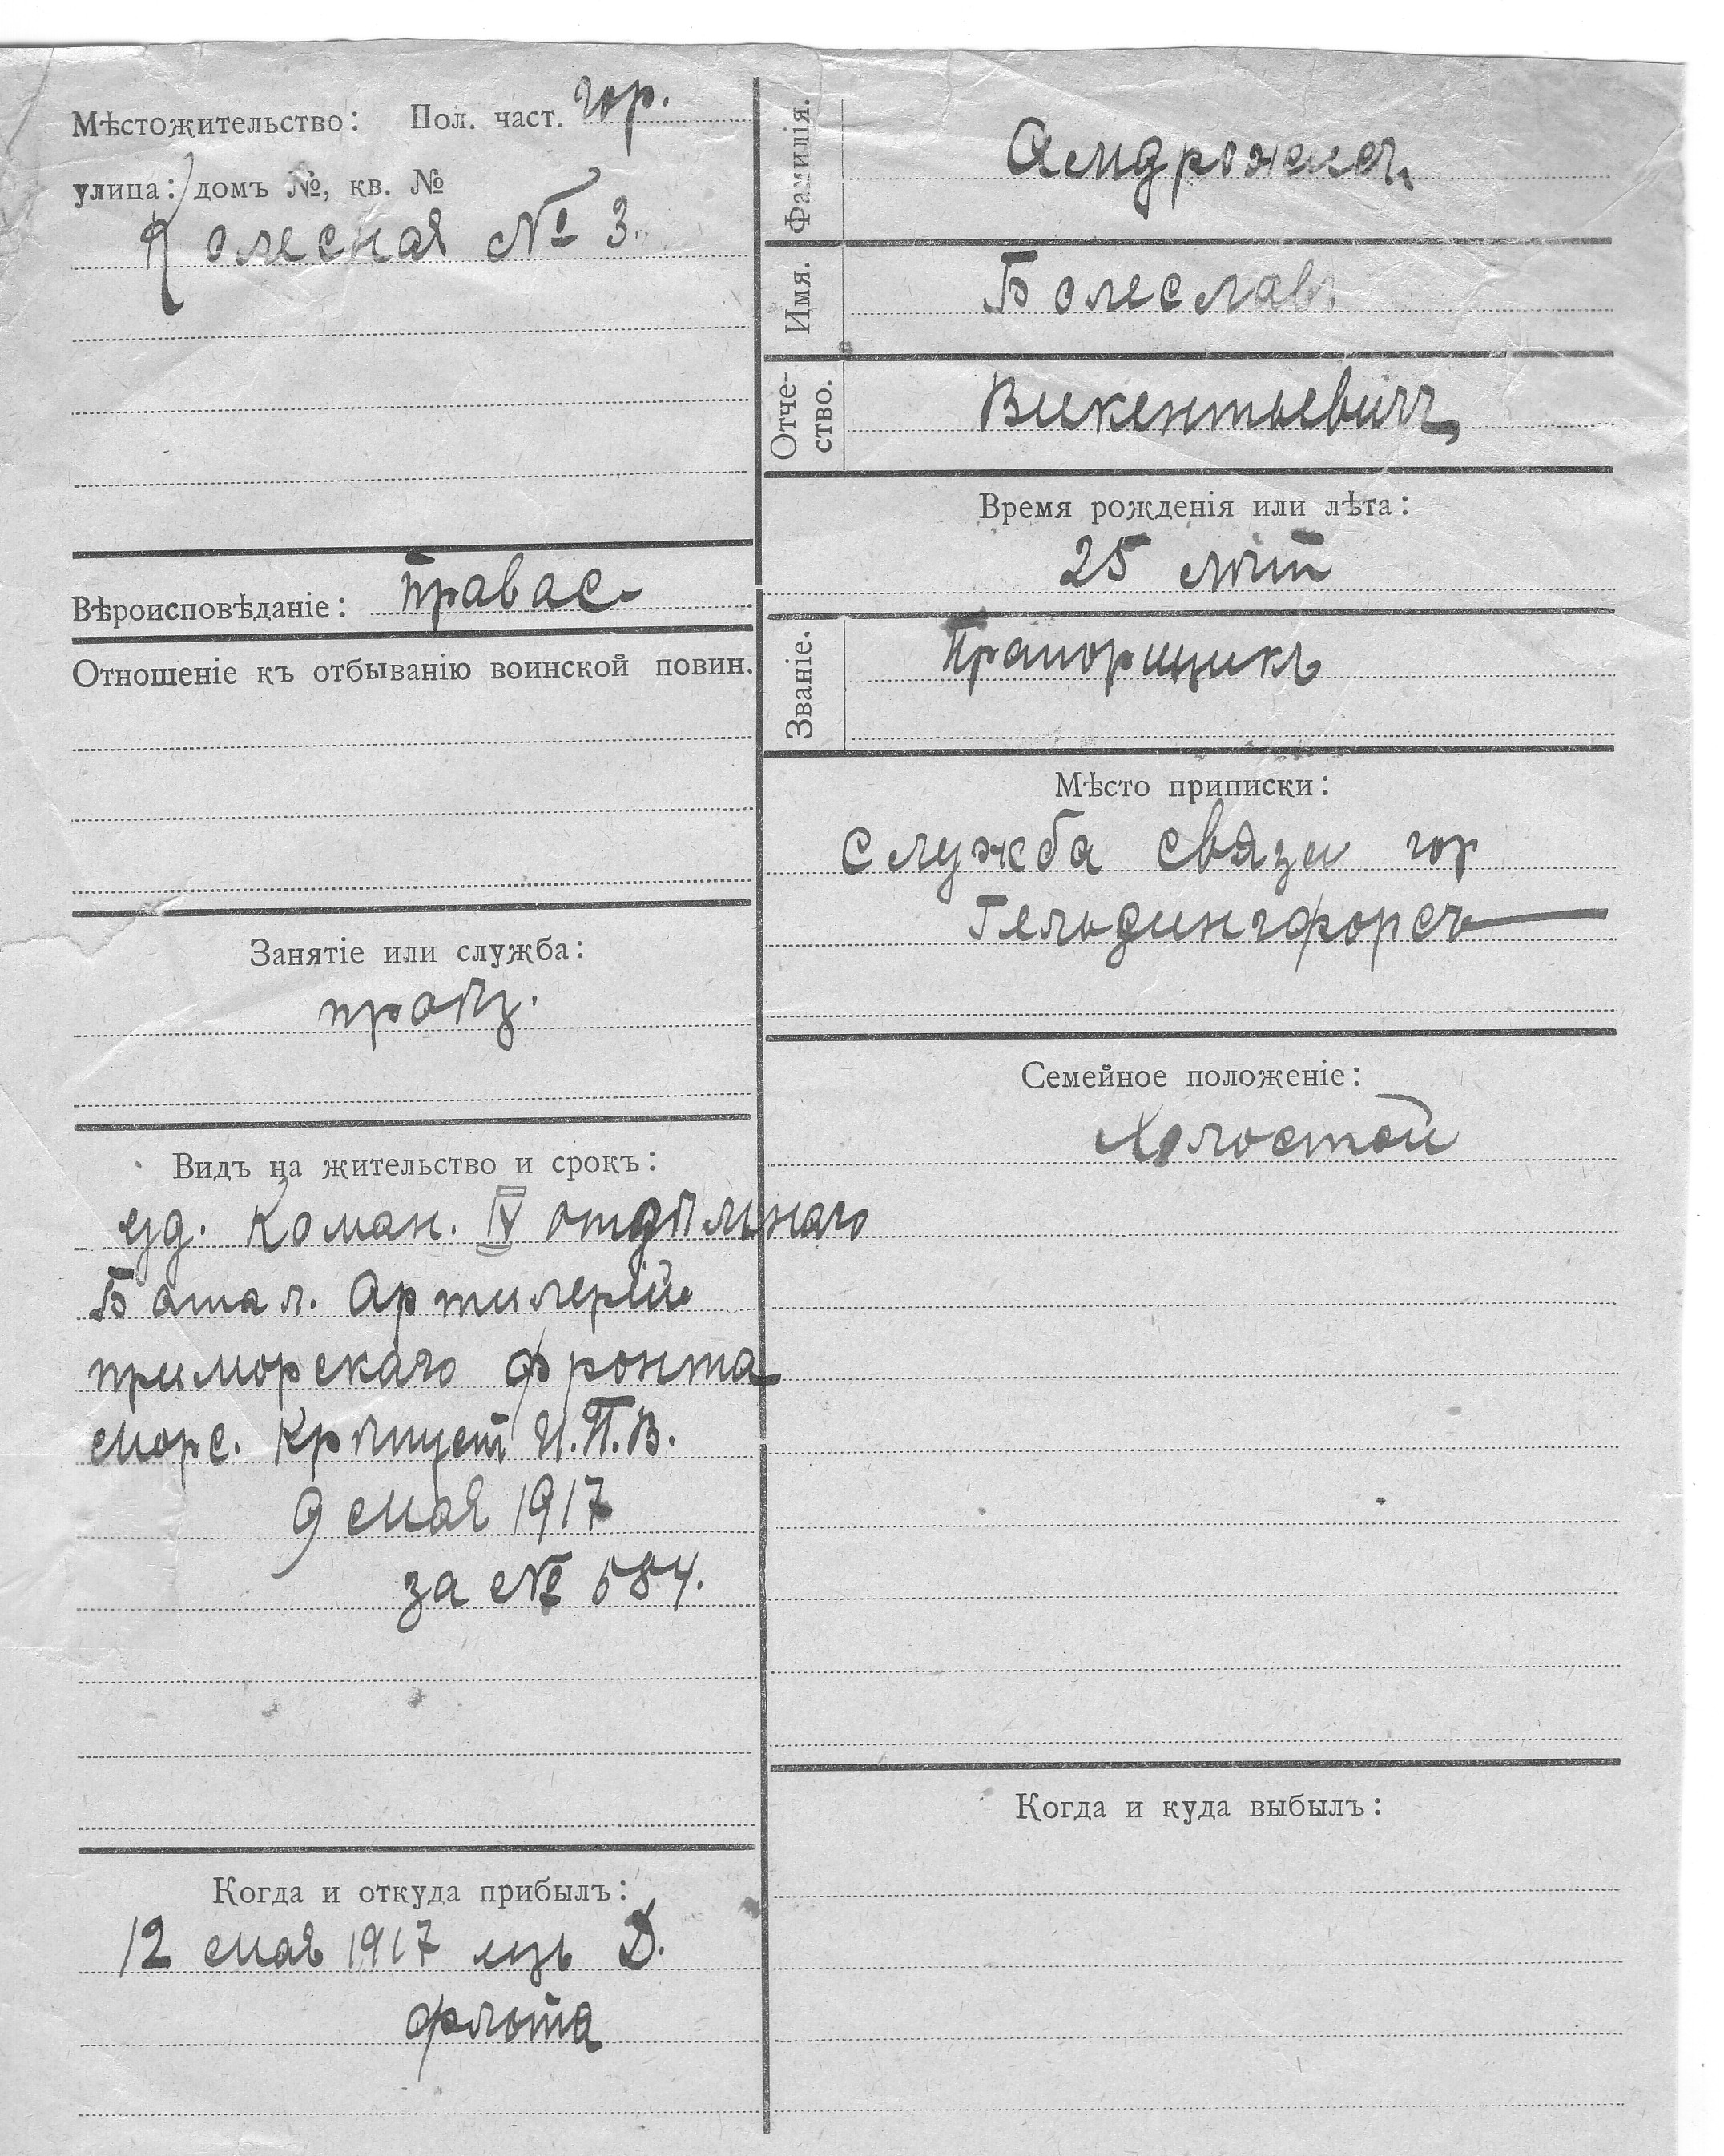 Мѣстожительство: Пол. част. гор.
улица: домъ №, кв. №
Колесная № 3.
Вѣроисповѣданіе: правас.
Отношеніе къ отбыванію воинской повин.
Занятіе или служба:
Видъ на жительство и срокъ:
уд. Коман. IV отдѣльнаго
Батал. Артилерій
приморскаго фронта
морс. Крѣпцет И.П.В.
9 мая 1917
за № 584.
Когда и откуда прибылъ:
12 мая 1917 изъ Д.
флота
Фамилія.
Имя. Болеславъ
Отче-
ство. Викентьевичъ
Время рожденія или лѣта:
25 лѣт
Званіе. Прапорщикъ
Мѣсто приписки:
служба связи гор
Гельдингфорсъ
Семейное положеніе:
Холостой
Когда и куда выбылъ: